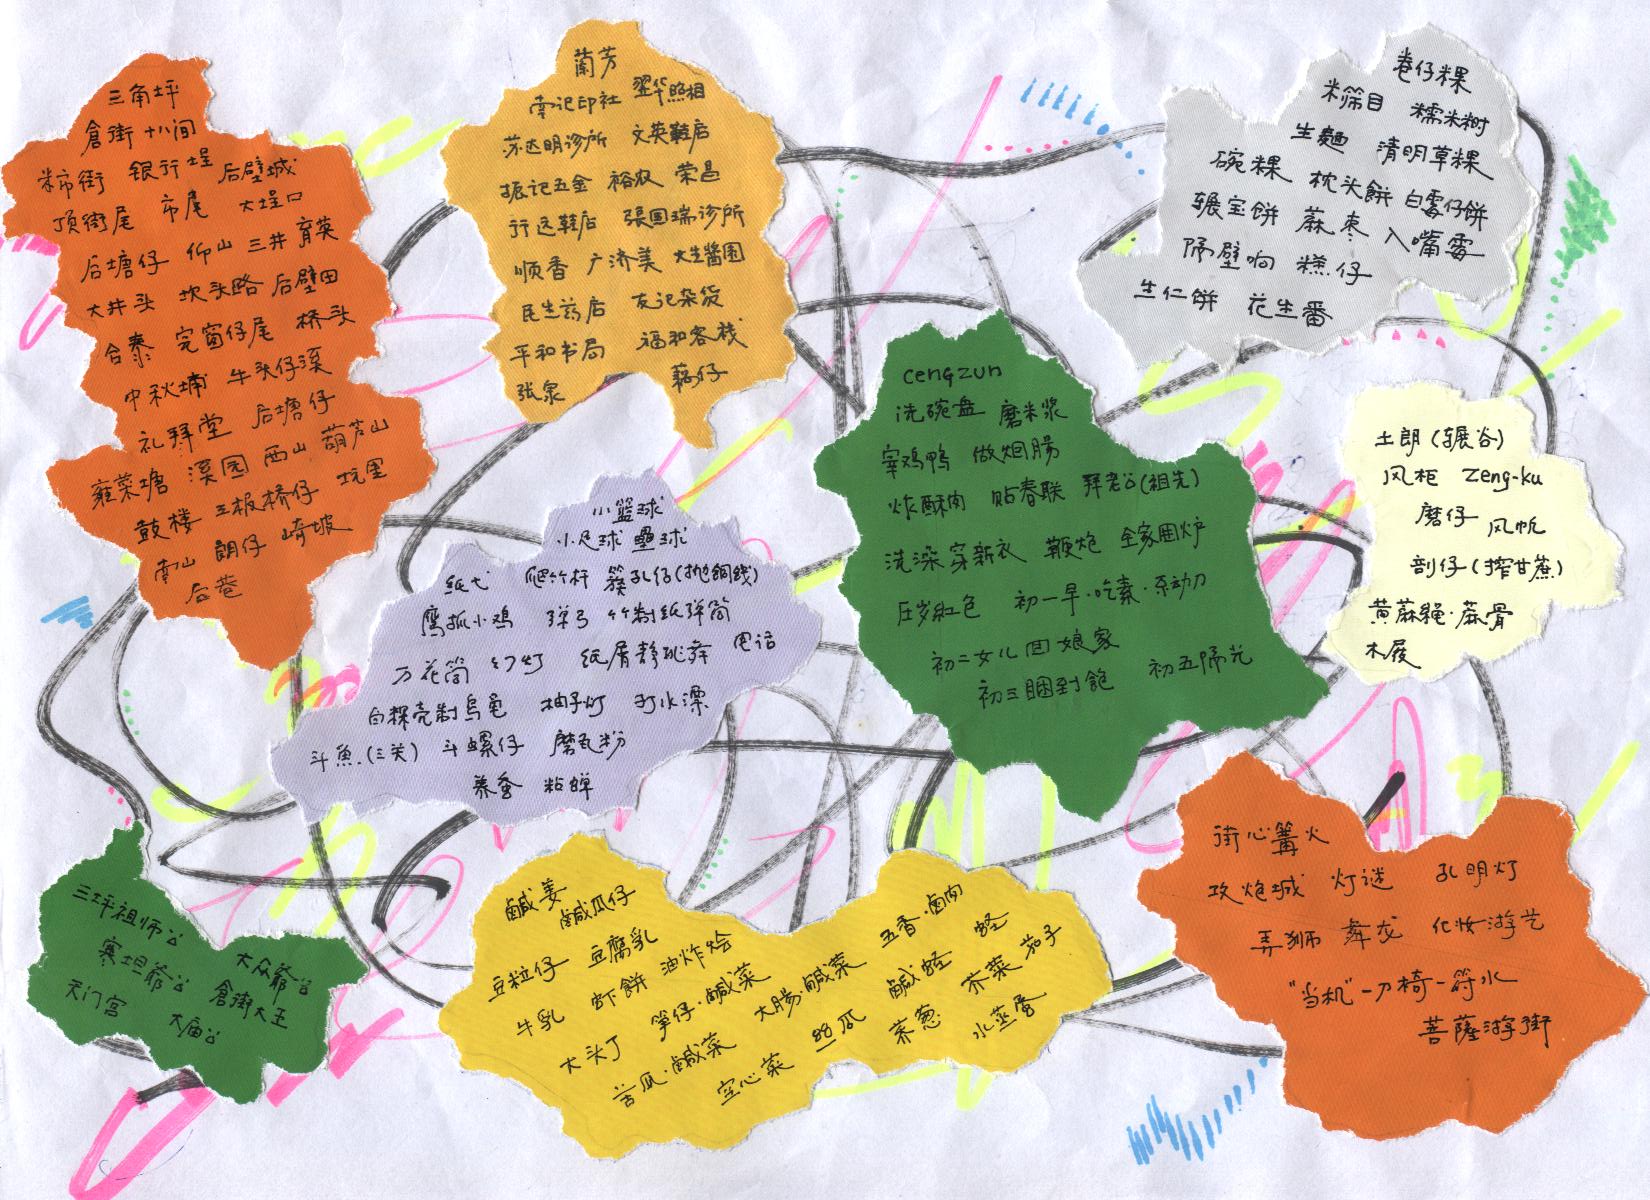 三角坪
倉街 十八间
柿街 银行埕 后壁城
顶街尾 市尾 大埕口
后塘仔 仰山 三井 育英
大井头 坎头路 后壁田
合泰 完窗仔尾 桥头
中秋埔 牛头仔溪
礼拜堂 后塘仔
蕹菜塘 溪园 西山 葫芦山
鼓楼 三板桥仔 坑里
南山 朗仔 崎坡
后巷
蘭芳
南记印社 翠华照相
苏达明诊所 文英鞋店
振记五金 裕农 荣昌
行远鞋店 張国瑞诊所
顺香 广济美 大生醬园
民生药店 友记杂货
平和书局 福和客栈
张泉 藕仔
卷仔粿
米筛目 糯米树
生麵 清明草粿
碗粿 枕头餅 白雪仔饼
辗宝饼 蔴枣 入嘴霉
隔壁响 糕仔
生仁饼 花生番
cengzun
洗碗盘 磨米浆
宰鸡鸭 做烟肠
炸酥肉 贴春联 拜老公(祖先)
洗澡穿新衣 鞭炮 全家围炉
压岁红包 初一早·吃素·不动刀
初二女儿回娘家
初三睏到飽 初五隔光
土朗(辗谷)
风柜 Zeng-ku
磨仔 风帆
剖仔(搾甘蔗)
黄蔴绳·蔴骨
木屐
小篮球
小足球 壘球
纸弋 爬竹杆 簽孔仔(抛銅錢)
鹰抓小鸡 弹弓 竹制纸弹筒
万花筒 幻灯 纸屑静玭舞 电话
白粿壳制烏龟 柚子灯 打水漂
斗魚.(三关) 斗螺仔 磨瓦粉
养蚕 粘蝉
三坪祖师公
寒坦爺公 大众爺公
天门宫 倉街大王
大庙公
鹹姜 鹹瓜仔
豆粒仔 豆腐乳 五香·鹵肉
牛乳 虾餅 油炸烩 鹹蛏 蛏
大头丁 笋仔·鹹菜 大肠·鹹菜 芥菜 茄子
苦瓜·鹹菜 空心菜 丝瓜 荞葱 水蒸蛋
街心篝火
攻炮城 灯谜 孔明灯
弄狮 舞龙 化妆游艺
"当机"-刀椅-符水
菩薩游街